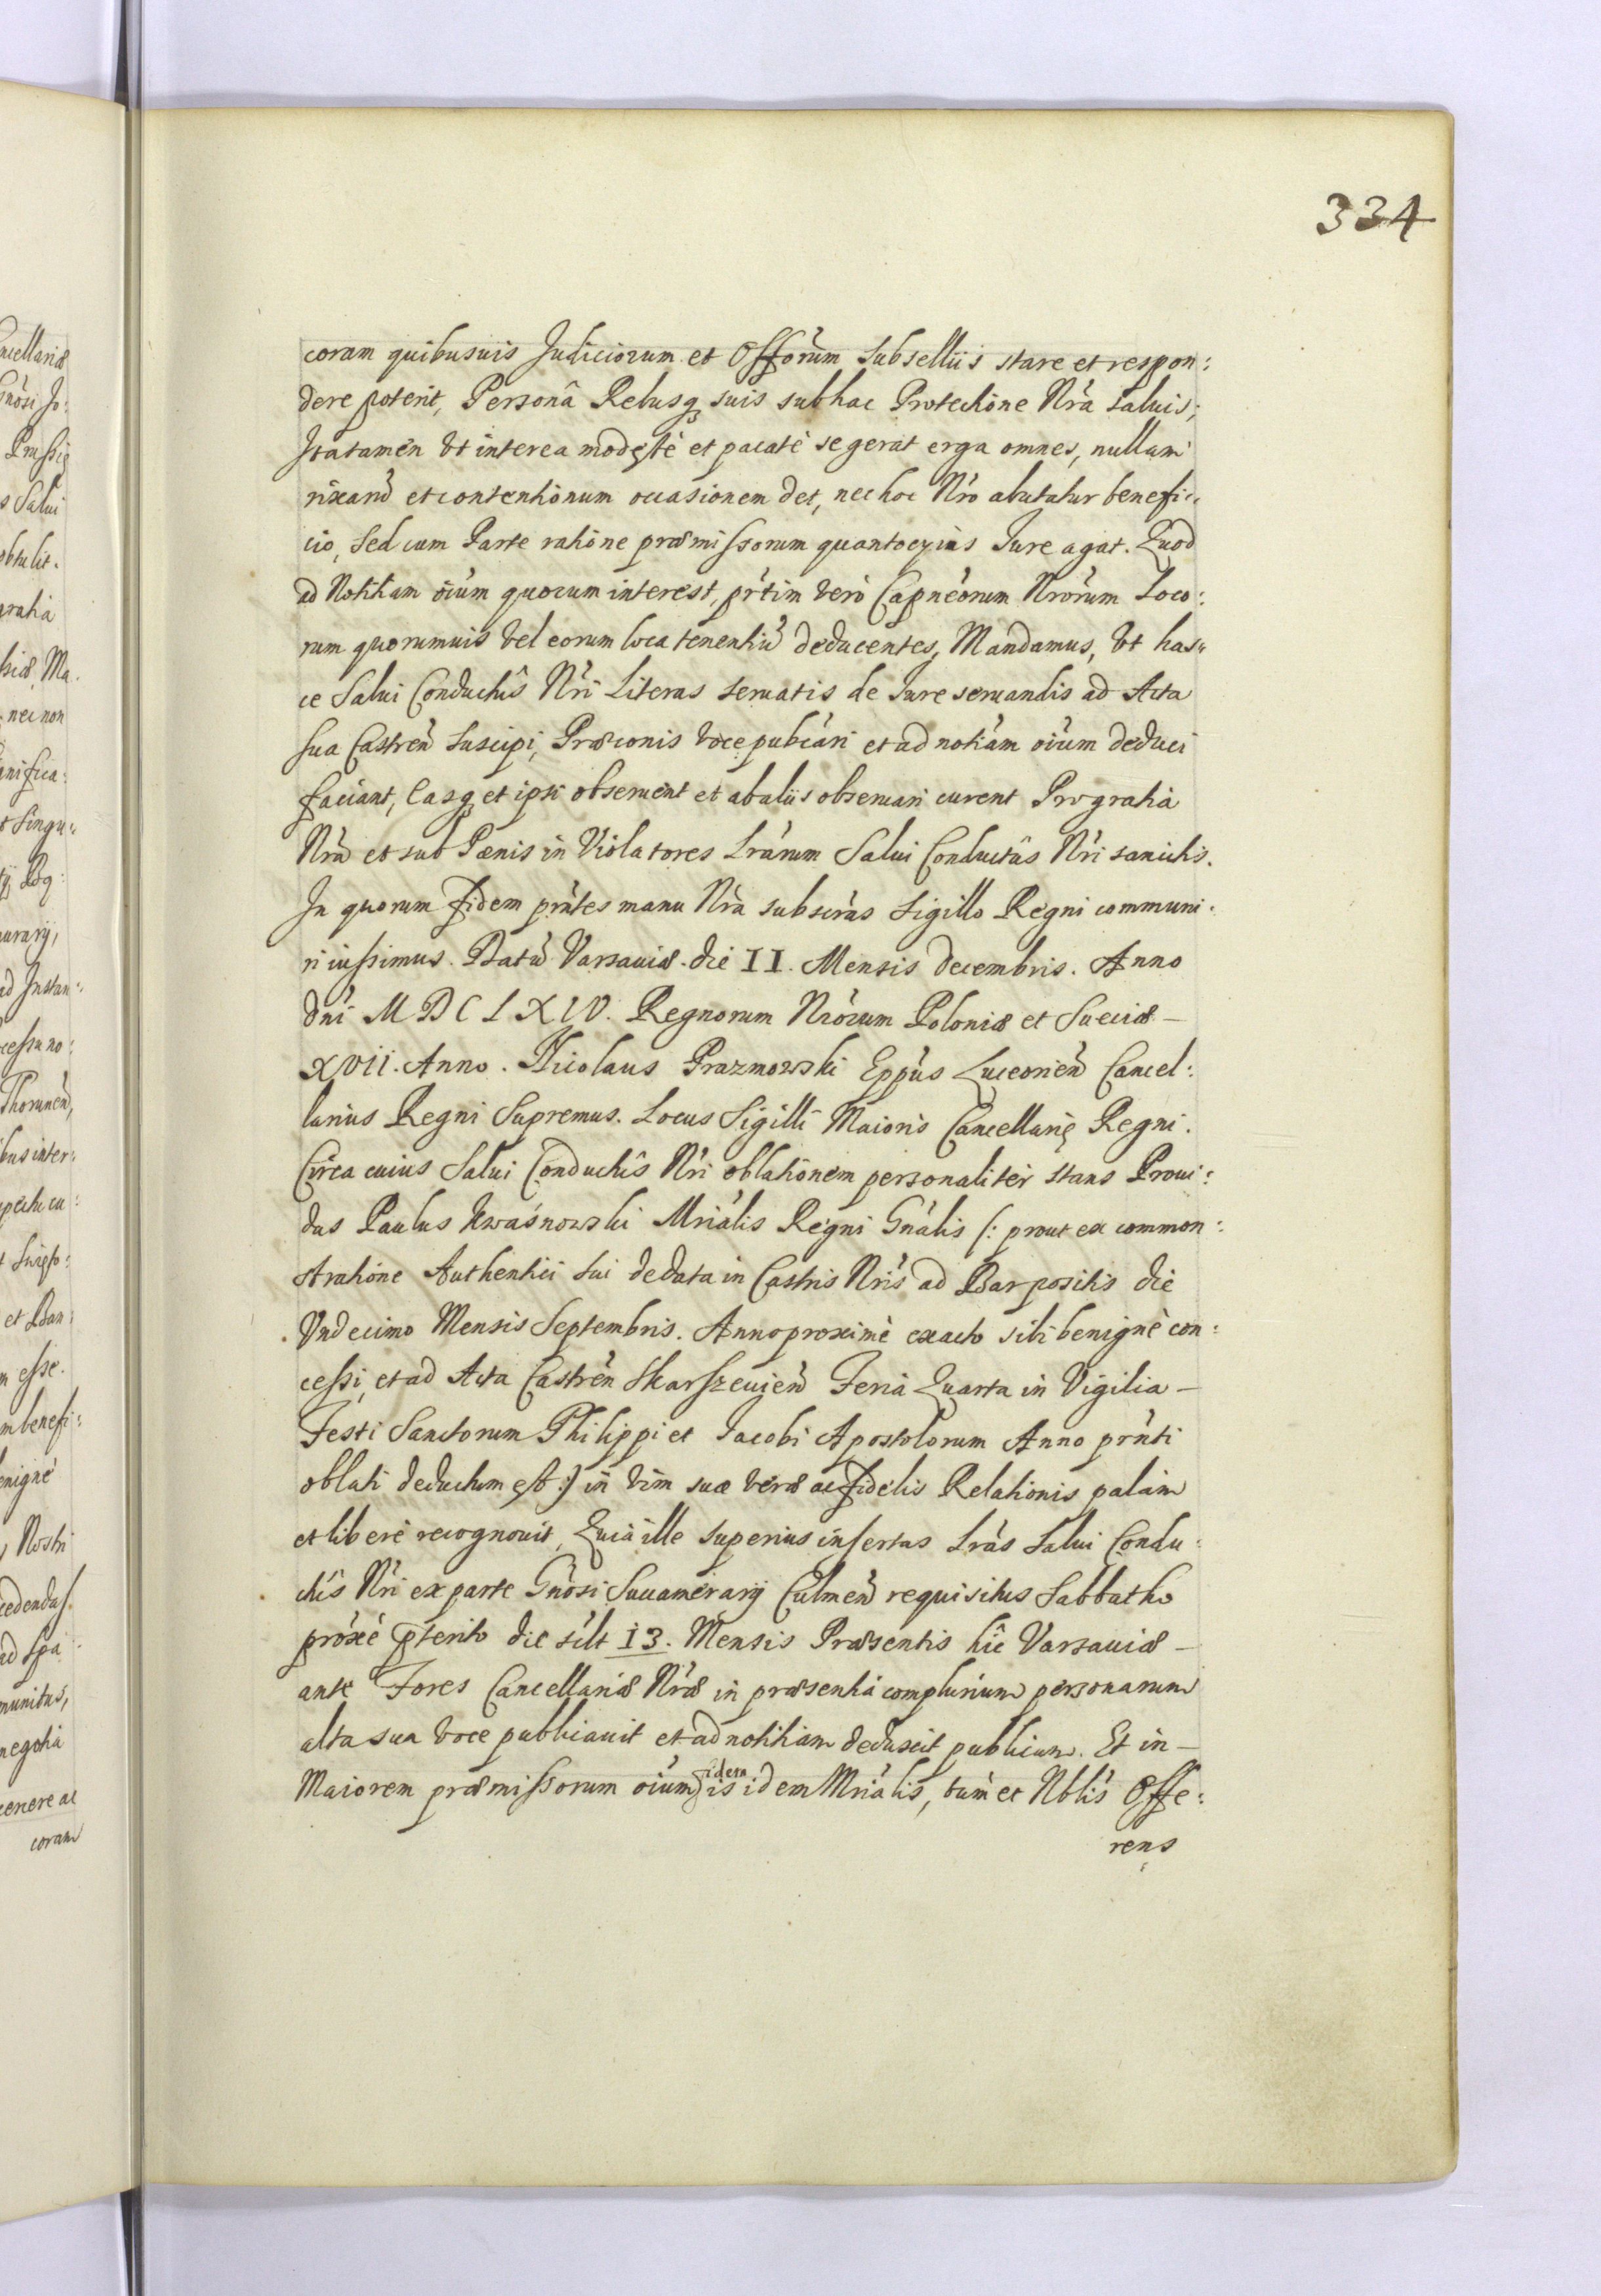 334
coram quibusuis Judiciorum et Offorum Subselliis stare et respon:
dere poterit, Personâ Rebusq suis sub hac Protectione Nrâ saluis;
Itatamen Vt interea modestè et pacatè se gerat erga omnes, nullam
rixarũ et contentionum occasionem det, nec hoc Nro abutatur benefi:
cio, Sed cum Parte ratione præmissorum quantocyius Jure agat. Quod
ad Notitiam oium quorum interest, prtim verò Capneorum Nrorum Loco:
rum quorumuis vel eorum loca tenentiũ deducentes, Mandamus, Vt has:
ce Salui Conductûs Nri Literas seruatis de Jure seruandis ad Acta
sua Castreñ Suscipi, Præconis voce publcari et ad notiam oium deduci
faciant, Easq et ipsi obseruent et ab aliis obseruari curent Pro gratia
Nrã et sub Pœnis in Violatores Lrarum Salui Conductûs Nri sancitis.
In quorum fidem prntes manu Nrã subscras Sigillo Regni communi:
ri iussimus. Datũ Varsauiæ. die II. Mensis Decembris. Anno
dni MDCLXIV. Regnorum Nrorum Poloniæ et Sueciæ –
XVII. Anno. Nicolaus Prazmowski Eppus Luceorieñ Cancel:
larius Regni Supremus. Locus Sigilli Maioris Cancellarię Regni.
Circa cuius Salui Conductûs Nri oblationem personaliter stans Proui:
dus Paulus Kwaśnowski Mrialis Regni Gnalis (: prout ex common:
stratione Authentici sui de data in Castris Nris ad Bar positis die
Vndecimo Mensis Septembris. Anno proximè exacto sibi benignè con:
cessi, et ad Acta Castreñ Skarszeuieñ Feria Quarta in Vigilia –
Festi Sanctorum Philippi et Jacobi Apostolorum Anno prnti
oblati deductum est :) in vim suæ veræ ac fidelis Relationis palàm
et liberè recognouit, Quia ille superius insertas Lras Salui Condu:
ctûs Nri ex parte Gnosi Succamerarij Culmeñ requisitus Sabbatho
proxè pterito die silt 13. Mensis Præsentis hîc Varsauiæ –
ante Fores Cancellariæ Nræ in præsentia complurium personarum
alta sua voce publicauit et ad notitiam deduxit publicam. Et in –
Maiorem præmissorum oium fidem is idem Mrialis, tùm et Nblis Offe:
rens